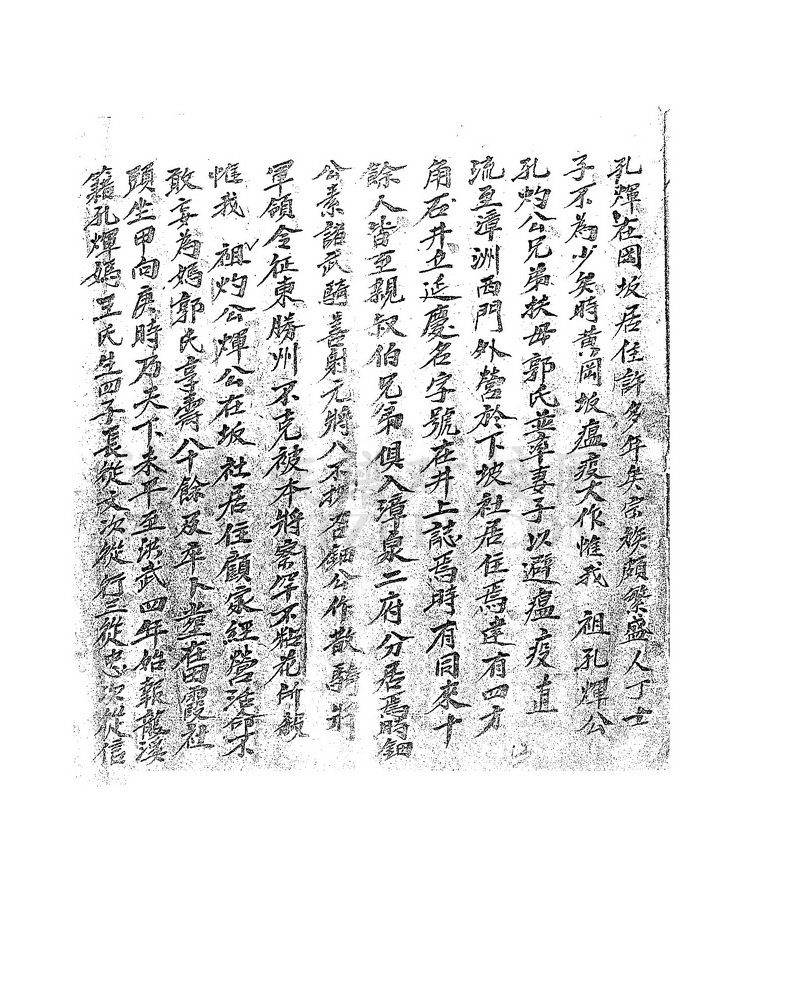 孔煇在岡坂居住許多年矣宗族頗繁盛人丁士
子不為少矣時黃岡坂瘟疫大作惟我 祖孔煇公
孔灼公兄弟扶母郭氏並率妻子以避瘟疫直
流至漳洲西門外營於下坡社居住焉建有四方
角石井且延慶名字號在井上誌焉時有同來十
餘人皆至親叔伯兄弟俱入漳泉二府分居焉時鈿
公素諳武騎善射元將八不抄召鈿公作散騎將
軍領令征東勝州不克被本將察罕不粘花所殺
惟我 祖灼公煇公在坂社居住顧家經營活命不
敢妄為媽郭氏享壽八十餘及卒卜塟在田霞社
頭坐甲向庚時乃天下未平至洪武四年始報龍溪
籍孔煇媽王氏生四子長從文次從行三從忠次從信